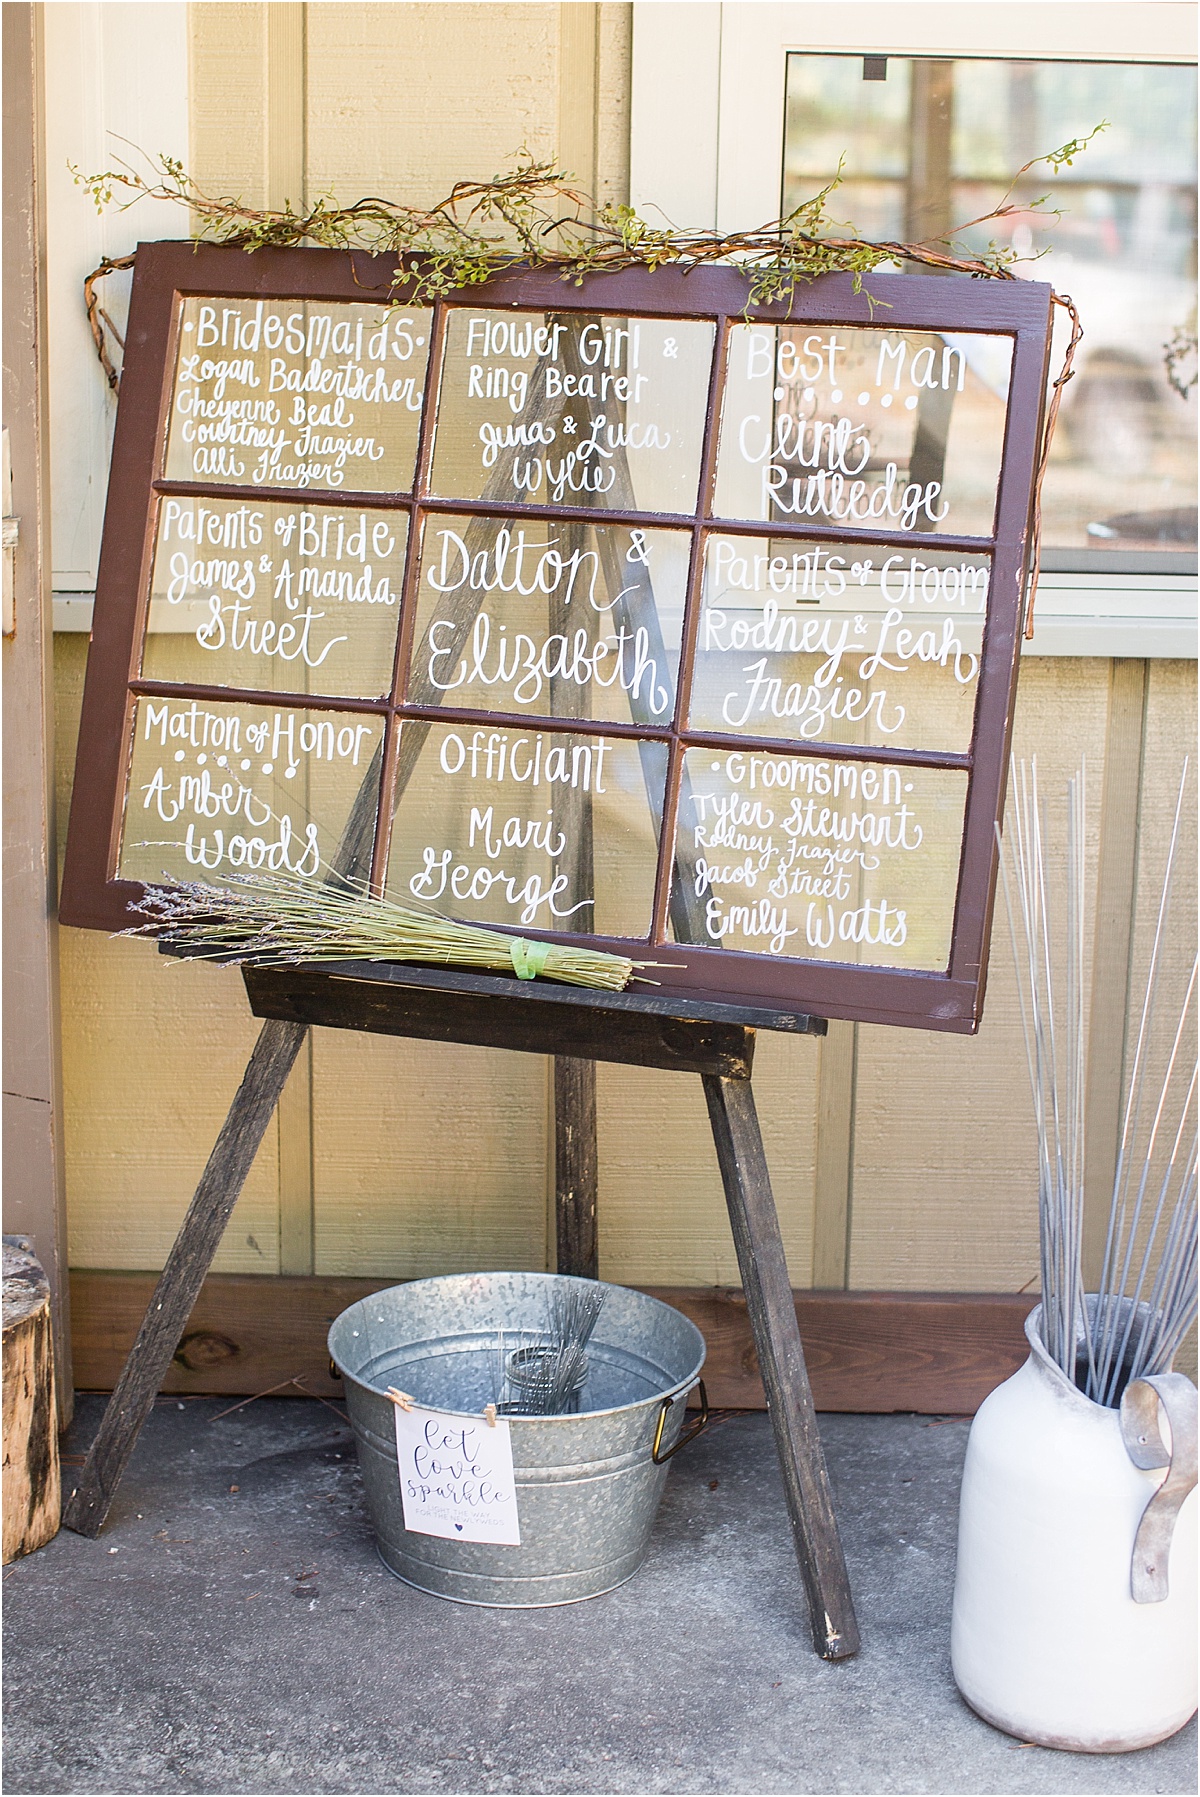 ·Bridesmaids·
Logan Badertscher
Cheyenne Beal
Courtney Frazier
Alli Frazier
Flower Girl &
Ring Bearer
& Luca
Wylie
Best Man
Clint
Rutledge
Parents of Bride
James & Amanda
Street
Dalton &
Elizabeth
Parents of Groom
Rodney & Leah
Frazier
Matron of Honor
Amber
Woods
Officiant
Mari
George
·Groomsmen·
Tyler Stewart
Rodney Frazier
Jacob Street
Emily Watts
let
love
sparkle
LIGHT THE WAY
FOR THE NEWLYWEDS